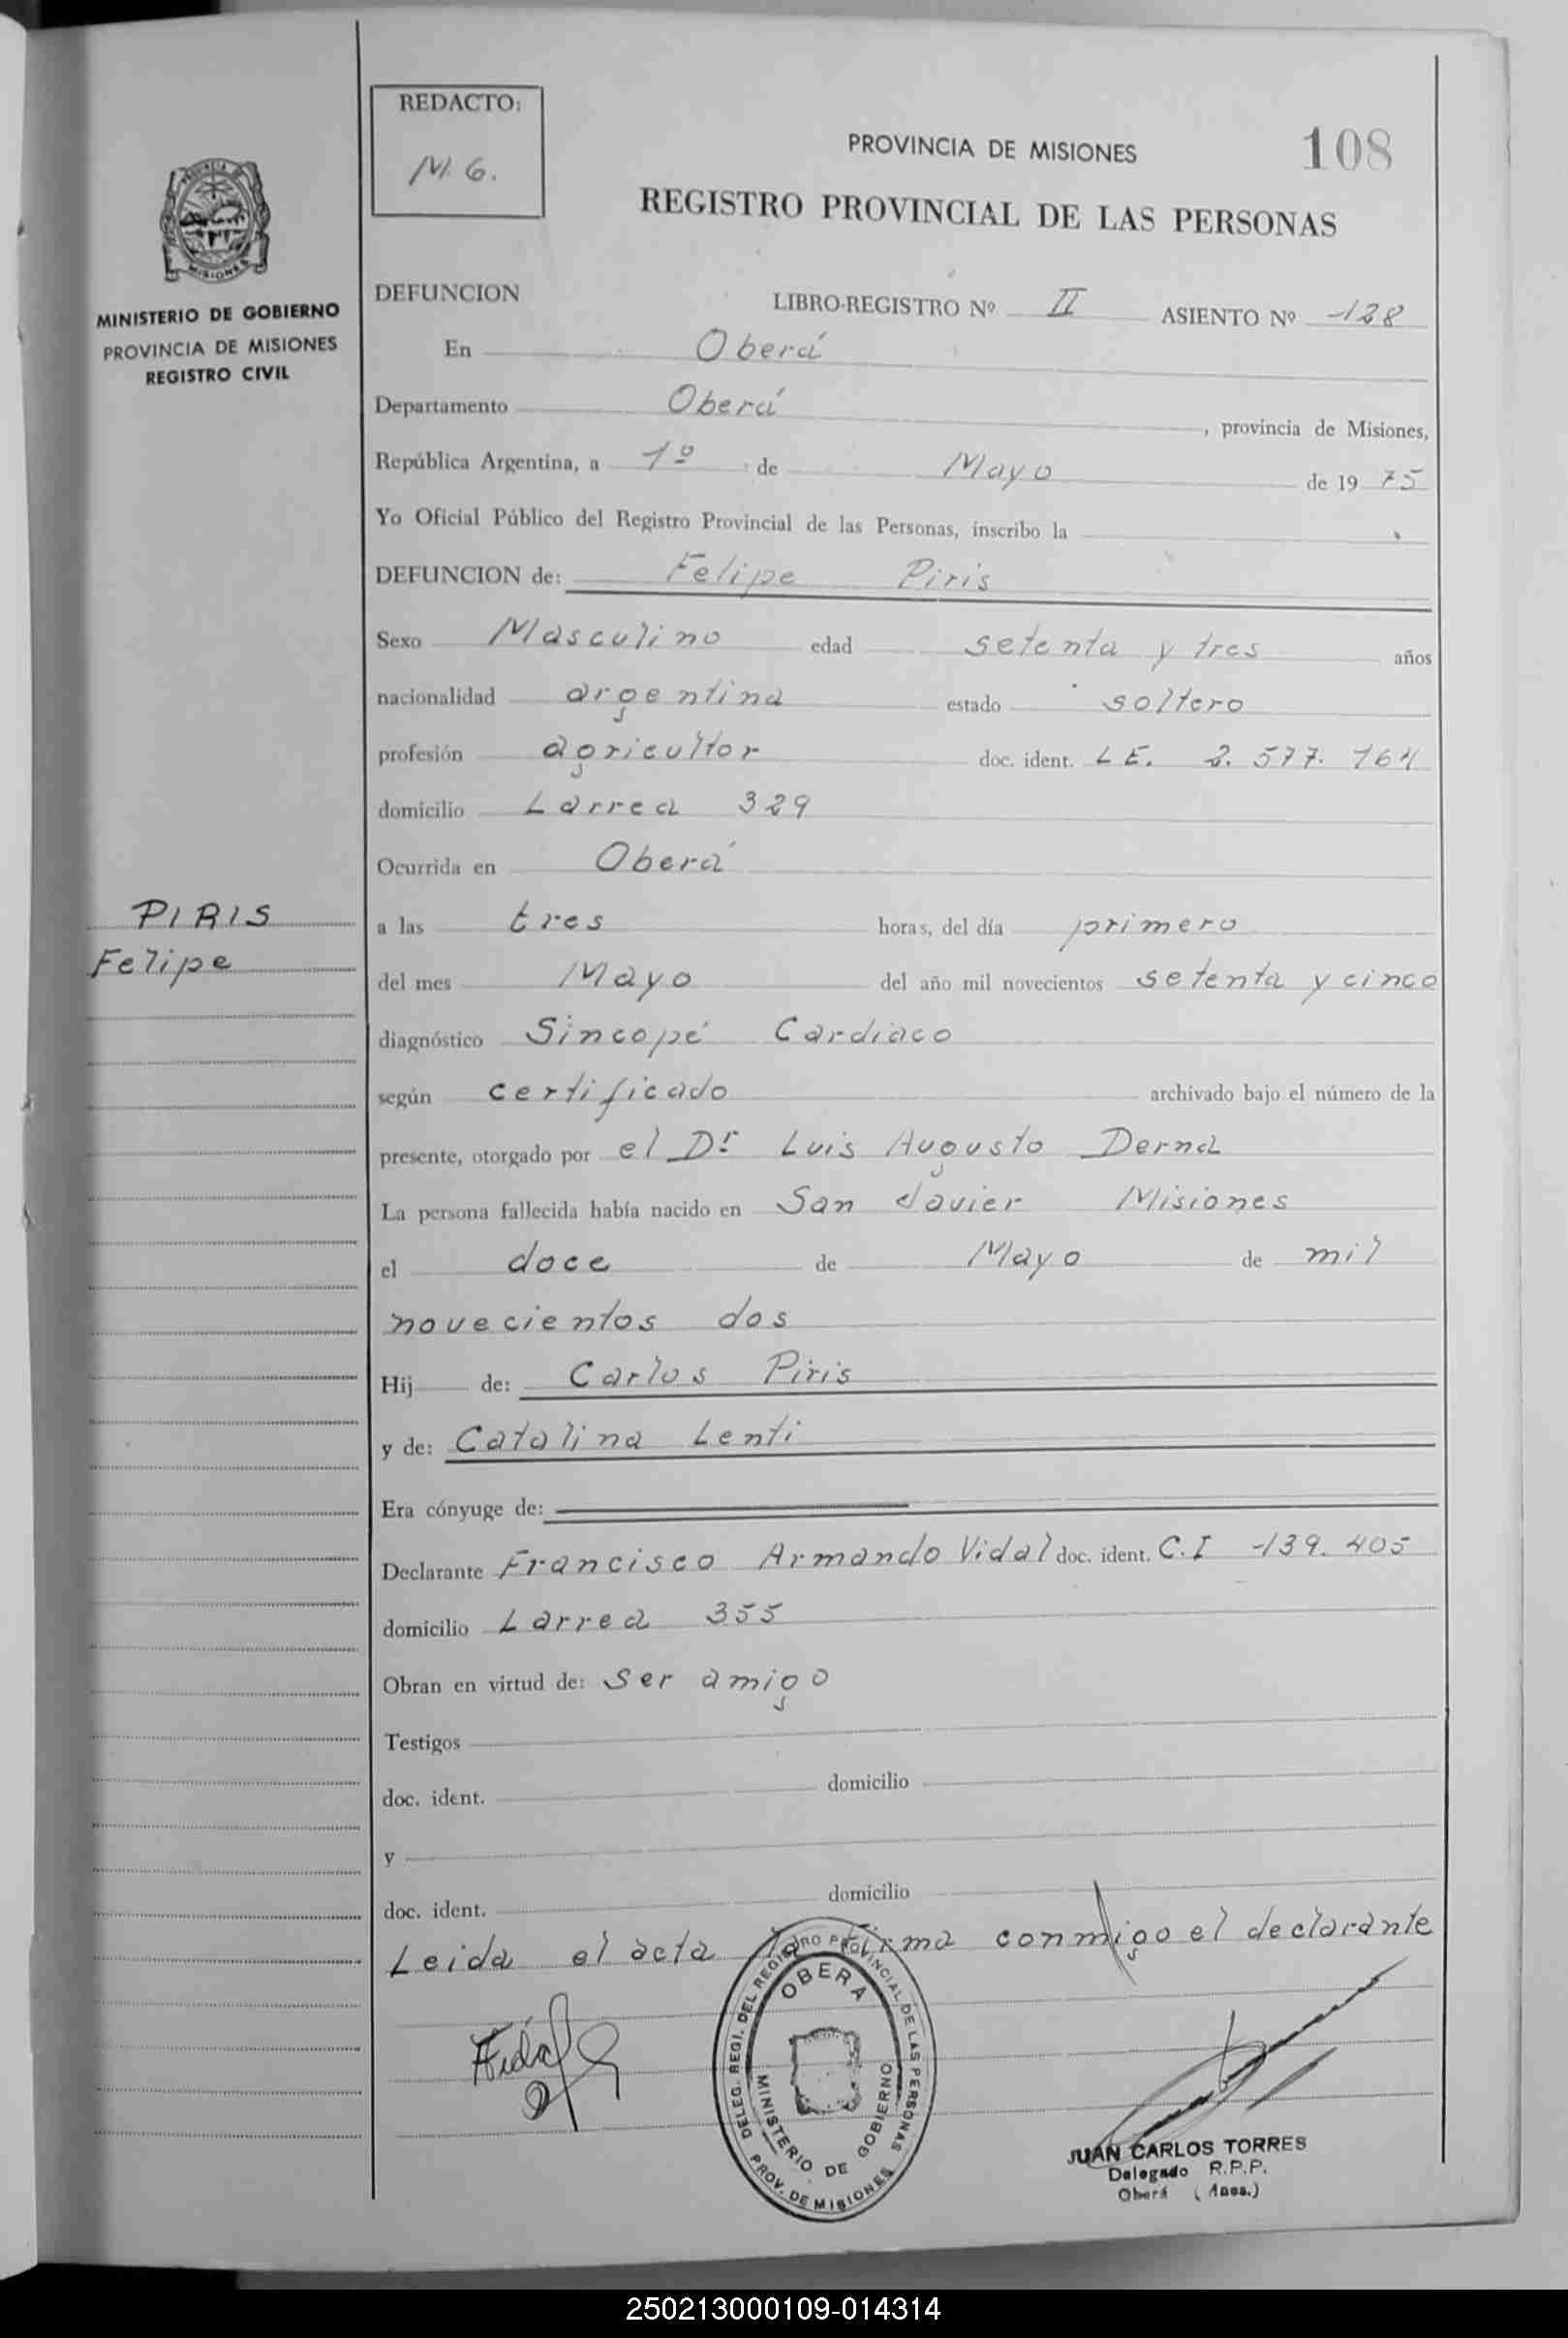 REDACTO:
M. G.
PROVINCIA DE MISIONES
108
REGISTRO PROVINCIAL DE LAS PERSONAS
MISIONES
MINISTERIO DE GOBIERNO
PROVINCIA DE MISIONES
REGISTRO CIVIL
DEFUNCION LIBRO-REGISTRO Nº II ASIENTO Nº 128
En Oberá
Departamento Oberá, provincia de Misiones,
República Argentina, a 1º de Mayo de 1975
Yo Oficial Público del Registro Provincial de las Personas, inscribo la
DEFUNCION de: Felipe Piris
Sexo Masculino edad setenta y tres años
nacionalidad argentina estado soltero
profesión agricultor doc. ident. L E. 2. 577. 164
domicilio Larrea 329
Ocurrida en Oberá
PIRIS
Felipe
a las tres horas, del día primero
del mes Mayo del año mil novecientos setenta y cinco
diagnóstico Sincopé Cardiaco
según certificado archivado bajo el número de la
presente, otorgado por el Dr Luis Augusto Derna
La persona fallecida había nacido en San Javier Misiones
el doce de Mayo de mil
novecientos dos
Hij de: Carlos Piris
y de: Catalina Lenti
Era cónyuge de:
Declarante Francisco Armando Vidal doc. ident. C. I 139. 405
domicilio Larrea 355
Obran en virtud de: Ser amigo
Testigos
doc. ident. domicilio
y
doc. ident. domicilio
Leida el acta la firma conmigo el declarante
DELEG. REGI. DEL REGISTRO PROVINCIAL DE LAS PERSONAS
OBERA
MINISTERIO DE GOBIERNO
PROV. DE MISIONES
JUAN CARLOS TORRES
Delegado R.P.P.
Oberá
250213000109-014314